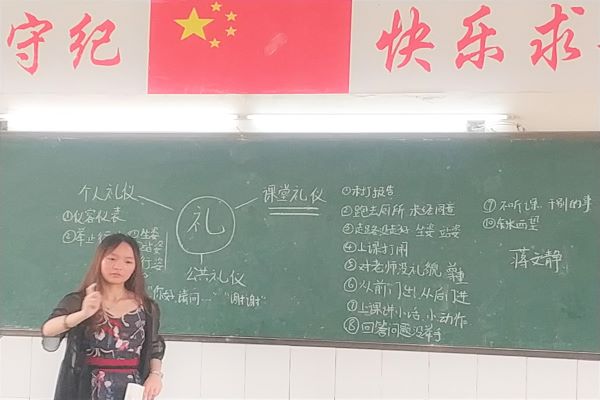 守纪
快乐求
个人礼仪
①仪容仪表
②举止行
①坐姿
站姿
行姿
礼
公共礼仪
"你好,请问…" "谢谢"
课堂礼仪
①未打报告
②跑去厕所 未经同意
③走路没走好 坐姿 站姿
④上课打闹
⑤对老师没礼貌 尊重
⑥从前门出,从后门进
⑦上课讲小话,小动作
⑧回答问题没举手
⑨不听课 干别的事
⑩东张西望
蒋文静